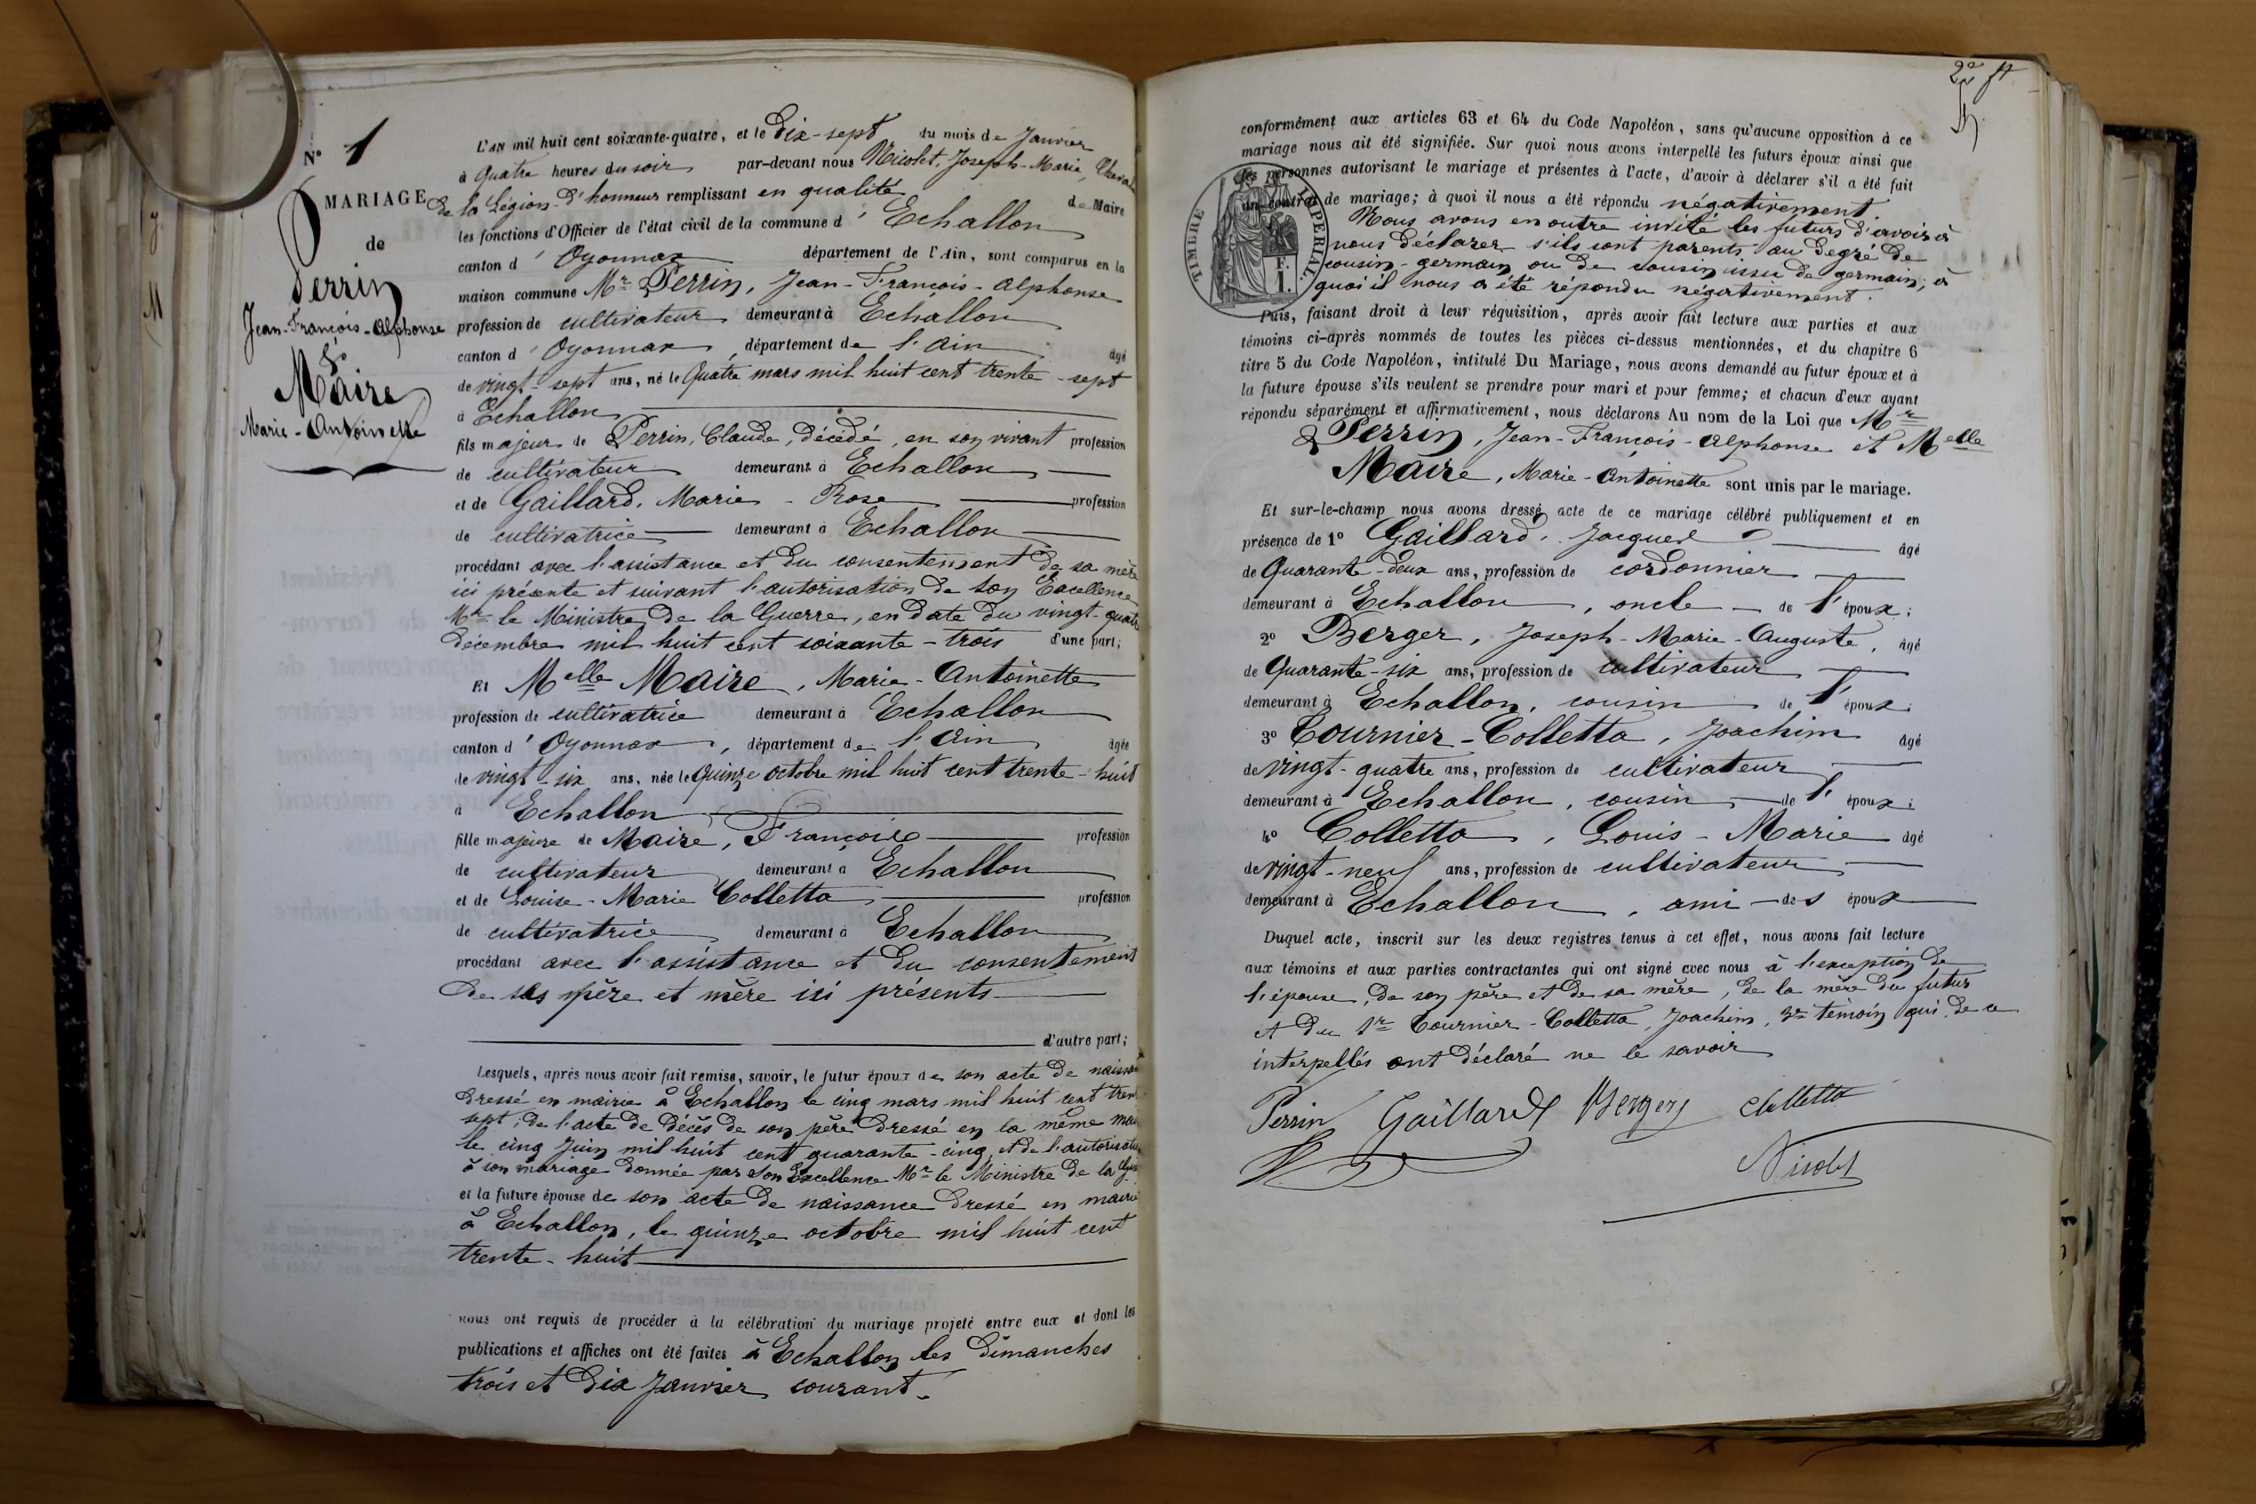 N° 1
MARIAGE
de
Perrin
Jean-François-Alphonse
&
Maire
Marie-Antoinette
L'AN mil huit cent soixante-quatre, et le Dix-sept du mois de Janvier
à Quatre heures du soir par-devant nous Nicolet, Joseph-Marie,
de la Légion-d'honneur remplissant en qualité de Maire
les fonctions d'Officier de l'état civil de la commune d'Echallon
canton d'Oyonnax département de l'Ain, sont comparus en la
maison commune Mr Perrin, Jean-François-Alphonse
profession de cultivateur demeurant à Echallon
canton d'Oyonnax département de l'Ain âgé
de vingt-sept ans, né le Quatre mars mil huit cent trente-sept
à Echallon
fils majeur de Perrin, Claude, décédé, en son vivant profession
de cultivateur demeurant à Echallon
et de Gaillard, Marie-Rose profession
de cultivatrice demeurant à Echallon
procédant avec l'assistance et du consentement de sa mère
ici présente et suivant l'autorisation de Son Excellence
Mr le Ministre de la Guerre, en date du vingt-quatre
décembre mil huit cent soixante-trois d'une part;
Et Melle Maire, Marie-Antoinette
profession de cultivatrice demeurant à Echallon
canton d'Oyonnax, département de l'Ain âgée
de vingt-six ans, née le Quinze octobre mil huit cent trente-huit
à Echallon
fille majeure de Maire, François profession
de cultivateur demeurant à Echallon
et de Louise-Marie Colletta profession
de cultivatrice demeurant à Echallon
procédant avec l'assistance et du consentement
de ses père et mère ici présents
d'autre part;
Lesquels, après nous avoir fait remise, savoir, le futur époux de son acte de
dressé en mairie à Echallon le cinq mars mil huit cent
sept; de l'acte de décès de son père dressé en la même
le cinq Juin mil huit cent quarante-cinq, et de l'autorisation
à son mariage donnée par Son Excellence Mr le Ministre de la
et la future épouse de son acte de naissance dressé en mairie
à Echallon, le quinze octobre mil huit cent
trente-huit
nous ont requis de procéder à la célébration du mariage projeté entre eux et dont les
publications et affiches ont été faites à Echallon les dimanches
trois et dix Janvier courant.
conformément aux articles 63 et 64 du Code Napoléon, sans qu'aucune opposition à ce
mariage nous ait été signifiée. Sur quoi nous avons interpellé les futurs époux ainsi que
les personnes autorisant le mariage et présentes à l'acte, d'avoir à déclarer s'il a été fait
un contrat de mariage; à quoi il nous a été répondu négativement.
Nous avons en outre invité les futurs d'avoir à
nous déclarer s'ils sont parents au degré de
cousin-germain ou de cousin issu de germain; à
quoi il nous a été répondu négativement.
TIMBRE IMPERIAL
F.
1.
Puis, faisant droit à leur réquisition, après avoir fait lecture aux parties et aux
témoins ci-après nommés de toutes les pièces ci-dessus mentionnées, et du chapitre 6
titre 5 du Code Napoléon, intitulé Du Mariage, nous avons demandé au futur époux et à
la future épouse s'ils veulent se prendre pour mari et pour femme; et chacun d'eux ayant
répondu séparément et affirmativement, nous déclarons Au nom de la Loi que Mr
Perrin, Jean-François-Alphonse et Melle
Maire, Marie-Antoinette sont unis par le mariage.
Et sur-le-champ nous avons dressé acte de ce mariage célébré publiquement et en
présence de 1° Gaillard, Jacques âgé
de Quarante-deux ans, profession de cordonnier
demeurant à Echallon, oncle de l'époux;
2° Berger, Joseph-Marie-Auguste, âgé
de Quarante-six ans, profession de cultivateur
demeurant à Echallon, cousin de l'époux;
3° Tournier-Colletta, Joachim âgé
de vingt-quatre ans, profession de cultivateur
demeurant à Echallon, cousin de l'époux;
4° Colletta, Louis-Marie âgé
de vingt-neuf ans, profession de cultivateur
demeurant à Echallon, ami des époux
Duquel acte, inscrit sur les deux registres tenus à cet effet, nous avons fait lecture
aux témoins et aux parties contractantes qui ont signé avec nous à l'exception de
l'épouse, de son père et de sa mère, de la mère du futur
et du Sr Tournier-Colletta, Joachim, 3e témoin qui de ce
interpellés ont déclaré ne le savoir
Perrin Gaillard Berger Colletta
Nicolet